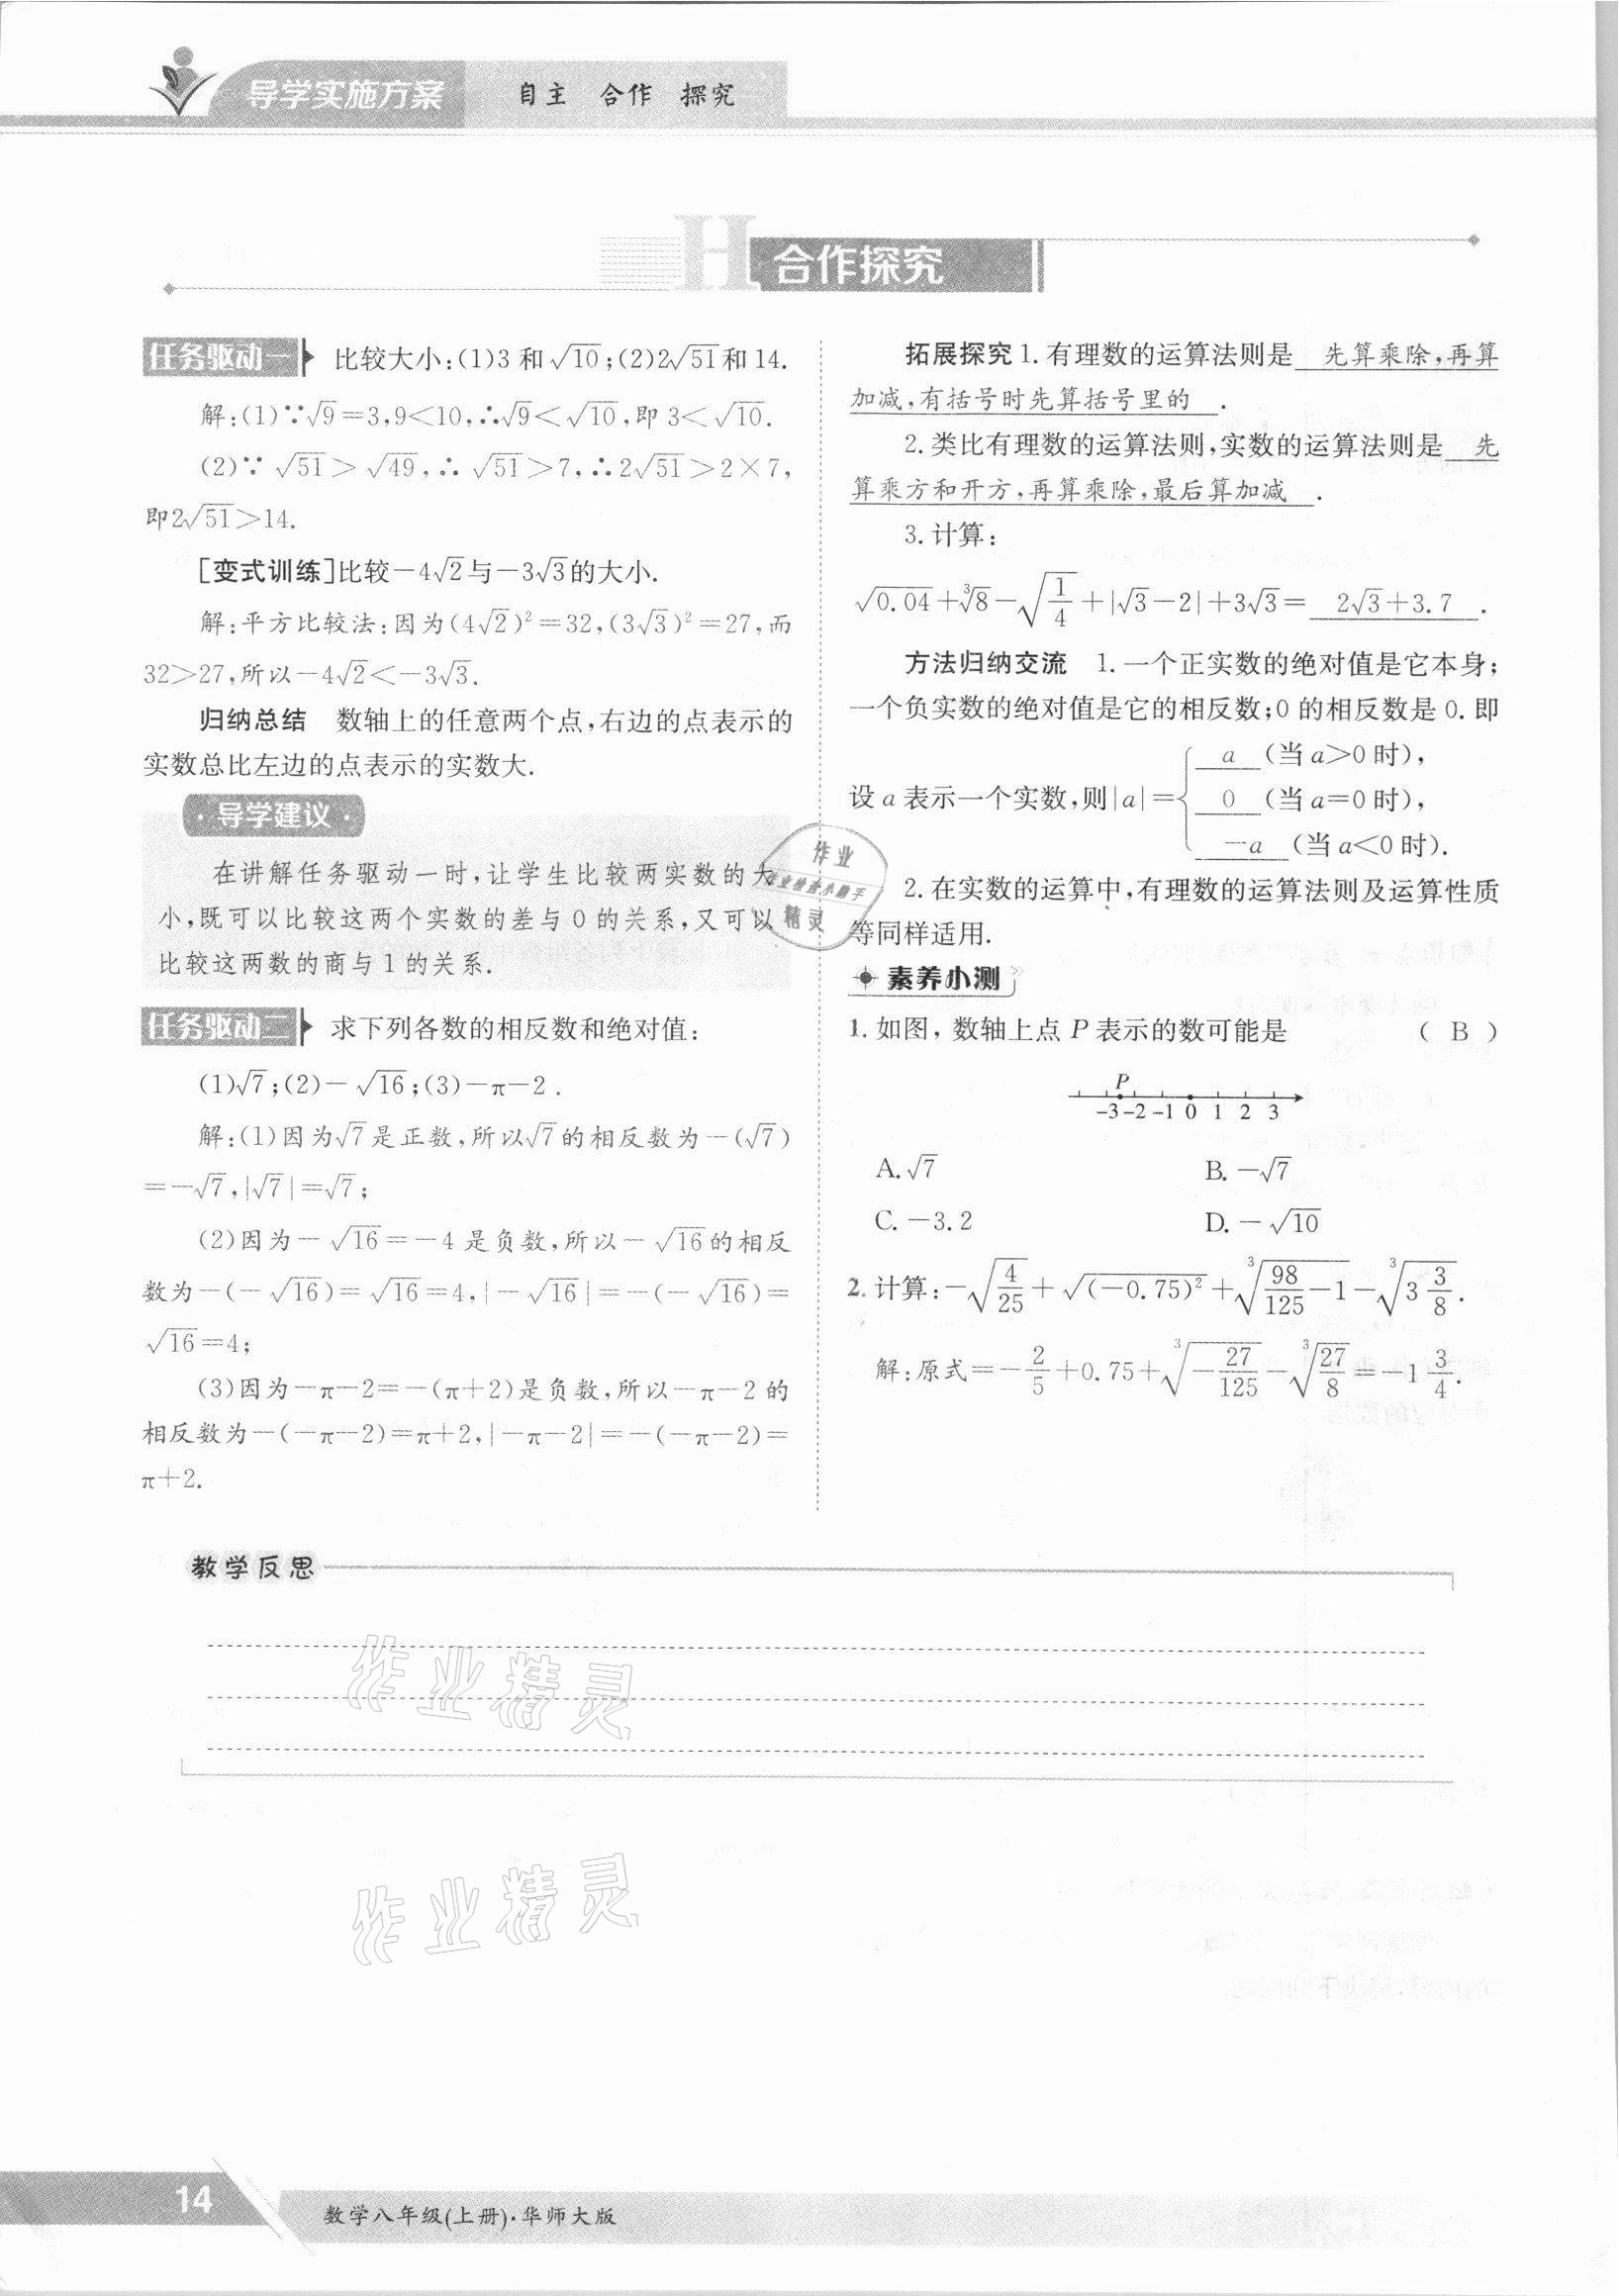 导学实施方案 自主 合作 探究
H 合作探究
任务驱动一 比较大小:(1)3 和 √10;(2)2√51和 14.
解:(1)∵√9=3,9<10,∴√9<√10,即 3<√10.
(2)∵ √51>√49,∴ √51>7,∴2√51>2×7,
即2√51>14.
[变式训练]比较-4√2与-3√3的大小.
解:平方比较法:因为(4√2)²=32,(3√3)²=27,而
32>27,所以-4√2<-3√3.
归纳总结 数轴上的任意两个点,右边的点表示的
实数总比左边的点表示的实数大.
·导学建议·
在讲解任务驱动一时,让学生比较两实数的大
小,既可以比较这两个实数的差与 0 的关系,又可以
比较这两数的商与 1 的关系.
任务驱动二 求下列各数的相反数和绝对值:
(1)√7;(2)-√16;(3)-π-2.
解:(1)因为√7是正数,所以√7的相反数为-(√7)
=-√7,|√7|=√7;
(2)因为-√16=-4 是负数,所以-√16的相反
数为-(-√16)=√16=4,|-√16|=-(-√16)=
√16=4;
(3)因为-π-2=-(π+2)是负数,所以-π-2 的
相反数为-(-π-2)=π+2,|-π-2|=-(-π-2)=
π+2.
拓展探究 1. 有理数的运算法则是 先算乘除,再算
加减,有括号时先算括号里的 .
2. 类比有理数的运算法则,实数的运算法则是 先
算乘方和开方,再算乘除,最后算加减 .
3. 计算:
√0.04+∛8-√(1/4)+|√3-2|+3√3= 2√3+3.7 .
方法归纳交流 1. 一个正实数的绝对值是它本身;
一个负实数的绝对值是它的相反数;0 的相反数是 0. 即
a (当 a>0 时),
设 a 表示一个实数,则|a|={ 0 (当 a=0 时),
-a (当 a<0 时).
2. 在实数的运算中,有理数的运算法则及运算性质
等同样适用.
素养小测
1. 如图,数轴上点 P 表示的数可能是 ( B )
P
-3 -2 -1 0 1 2 3
A. √7 B. -√7
C. -3.2 D. -√10
2. 计算:-√(4/25)+√(-0.75)²+∛(98/125-1)-∛(3 3/8).
解:原式=-2/5+0.75+∛(-27/125)-∛(27/8)=-1 3/4.
作业
作业检查小助手
精灵
教学反思
作业精灵
作业精灵
14 数学八年级(上册)·华师大版